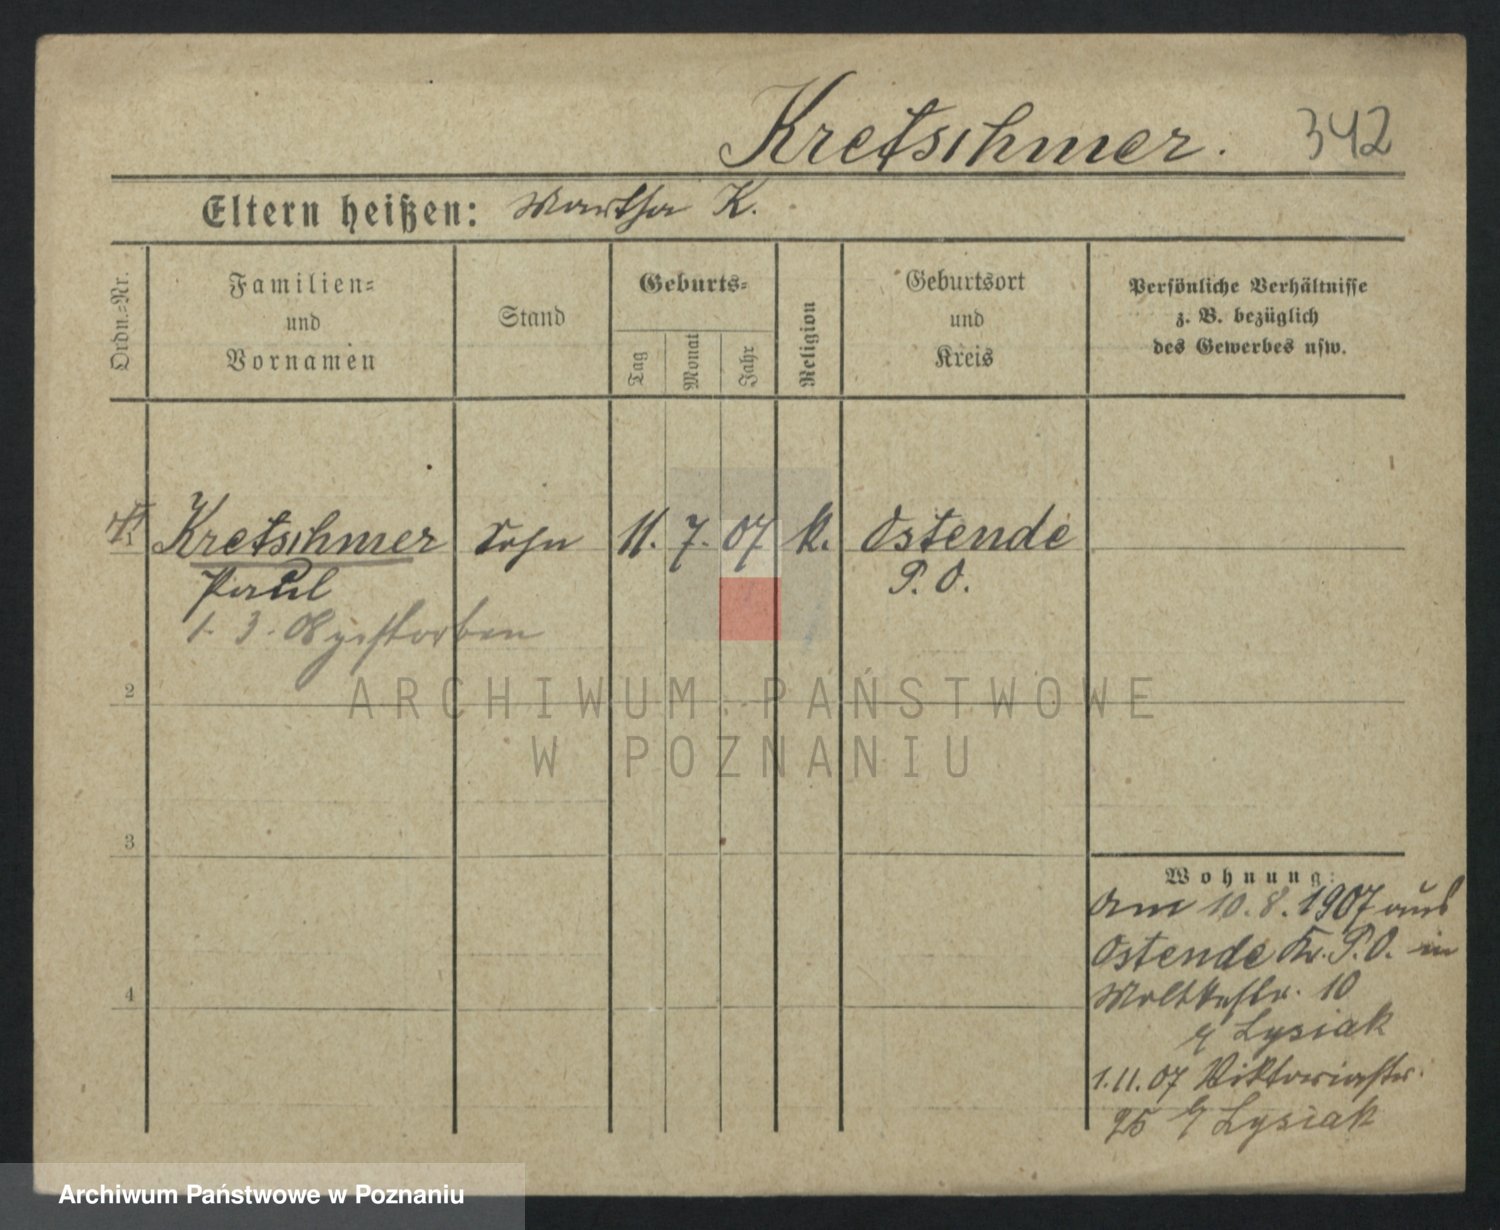 Kretschmer. 342
Eltern heißen: Martha K.
Ordn.-Nr.
Familien=
und
Vornamen
Stand
Geburts=
Tag
Monat
Jahr
Religion
Geburtsort
und
Kreis
Persönliche Verhältnisse
z. B. bezüglich
des Gewerbes usw.
1 Kretschmer Sohn 11. 7. 07 k. Ostende
Paul P. O.
1. 3. 08 gestorben
2
3
4
Wohnung:
Am 10. 8. 1907 aus
Ostende Kr. P. O. in
Moltkestr. 10
b/ Lysiak
1. 11. 07 Viktoriastr.
25 b/ Lysiak
ARCHIWUM PAŃSTWOWE
W POZNANIU
Archiwum Państwowe w Poznaniu